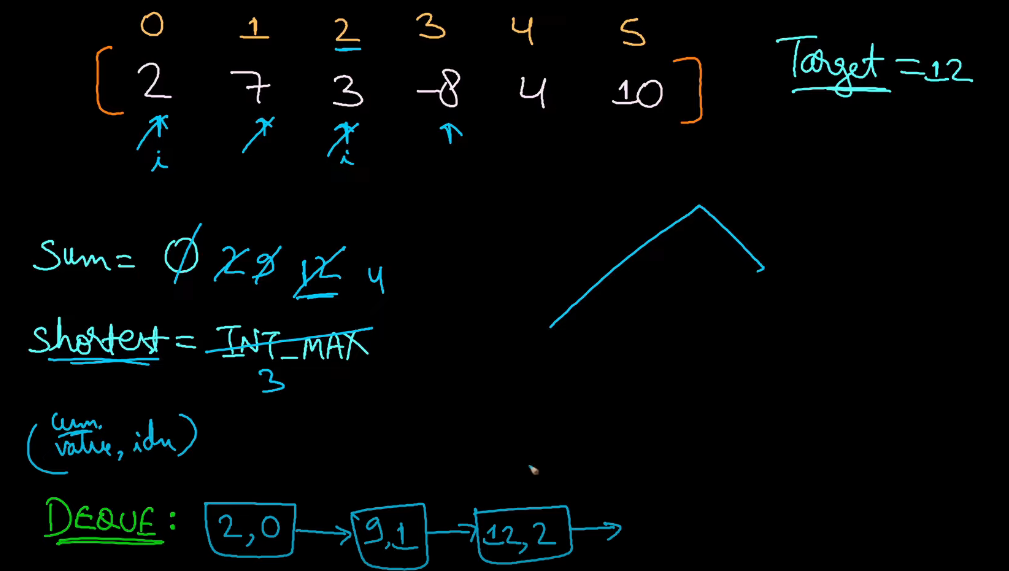 0 1 2 3 4 5
[ 2 7 3 -8 4 10 ] Target = 12
i i
Sum = 0 2 9 12 4
shortest = INT_MAX
3
(cum. value, idx)
DEQUE: 2,0 9,1 12,2